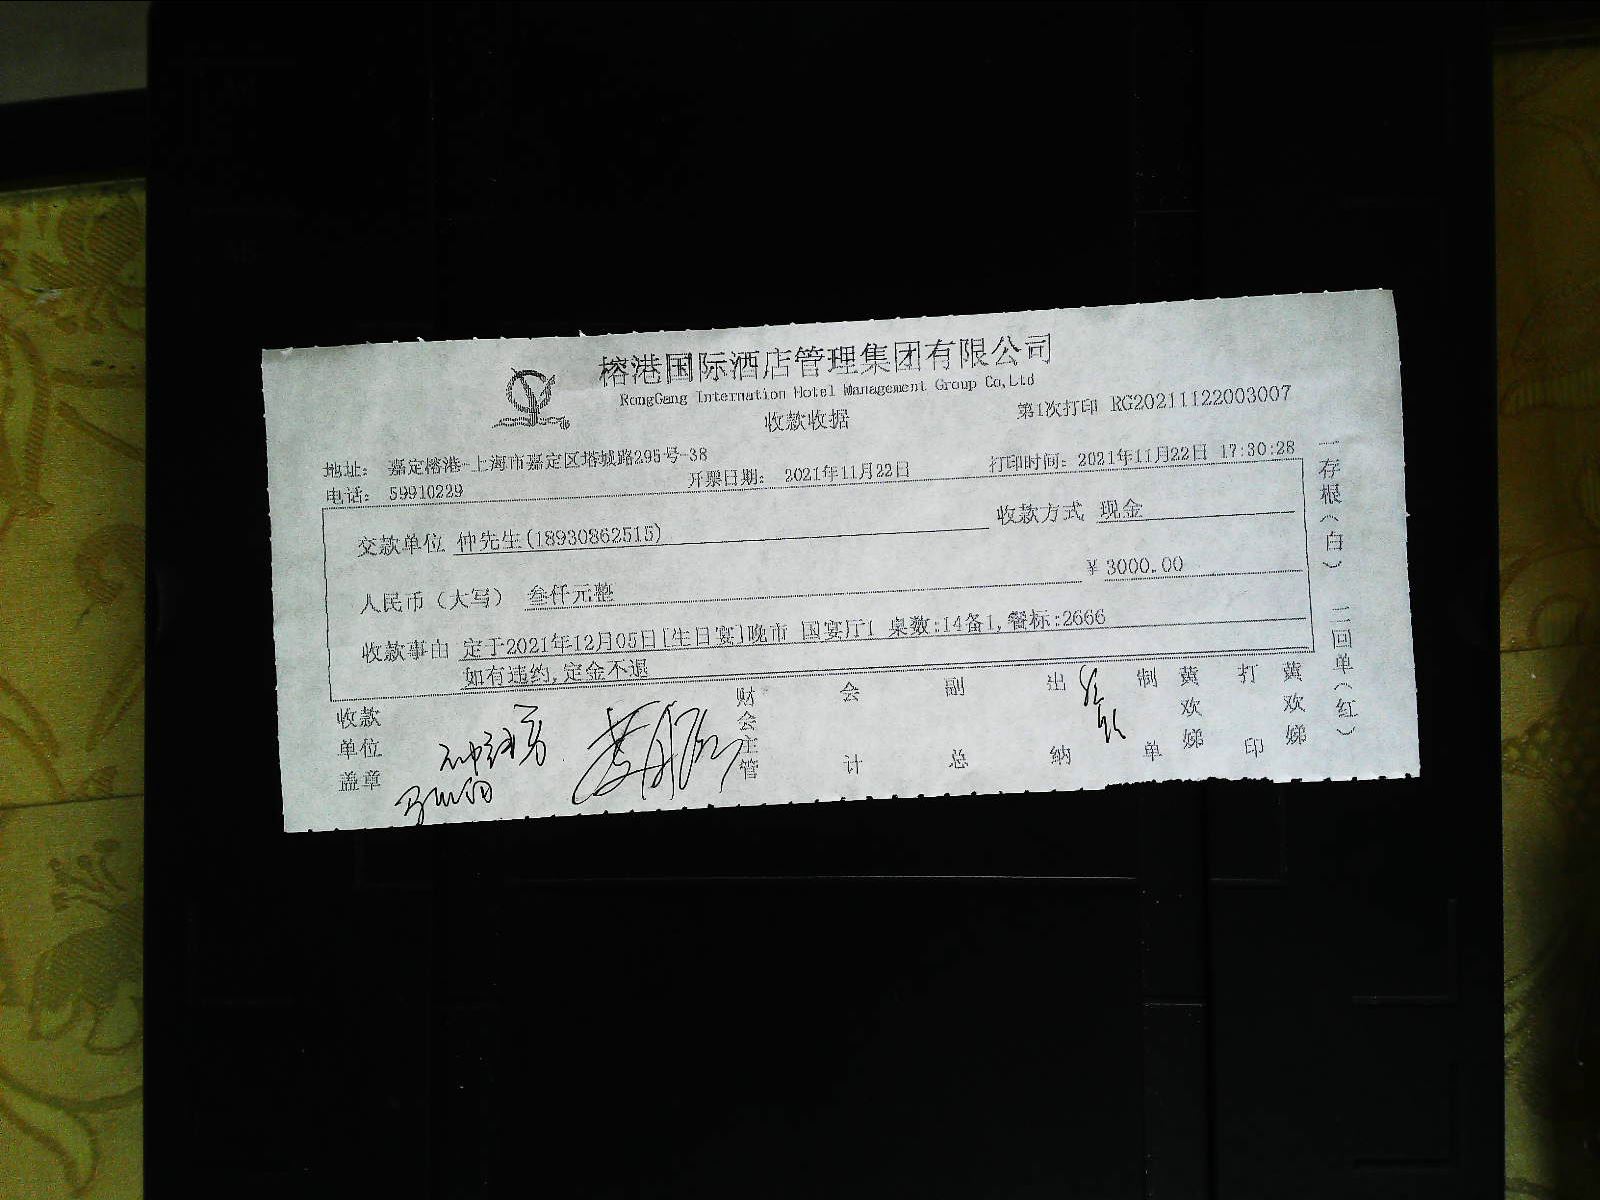 榕港国际酒店管理集团有限公司
RongGang Internation Hotel Management Group Co,Ltd
收款收据
第1次打印 RG20211122003007
地址： 嘉定榕港-上海市嘉定区塔城路295号-38
电话： 59910229
开票日期： 2021年11月22日
打印时间：2021年11月22日 17:30:28
交款单位 仲先生(18930862515)
收款方式 现金
人民币（大写） 叁仟元整
￥3000.00
收款事由 定于2021年12月05日[生日宴]晚市 国宴厅1 桌数:14备1,餐标:2666
如有违约,定金不退
收款单位盖章
财会主管
会计
副总
出纳
制单 黄欢娣
打印 黄欢娣
一存根（白） 二回单（红）